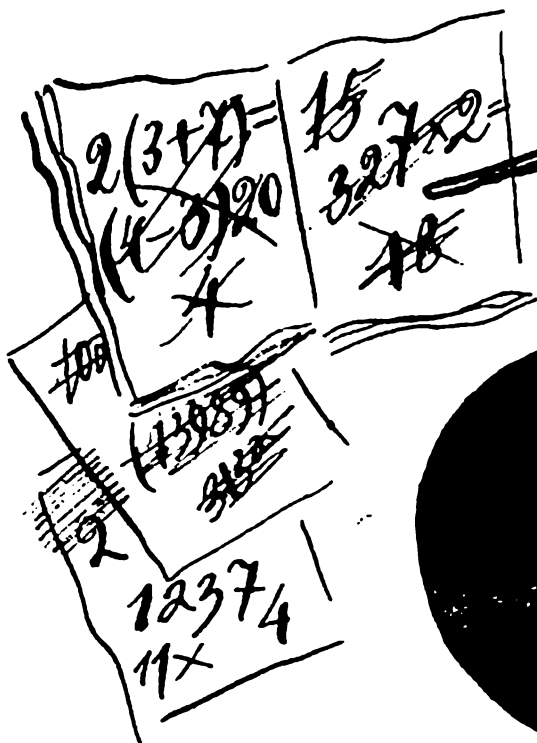 2(3+7)=
(4-3)20
4
15
327×2=
18
100
2
1237
4
11×